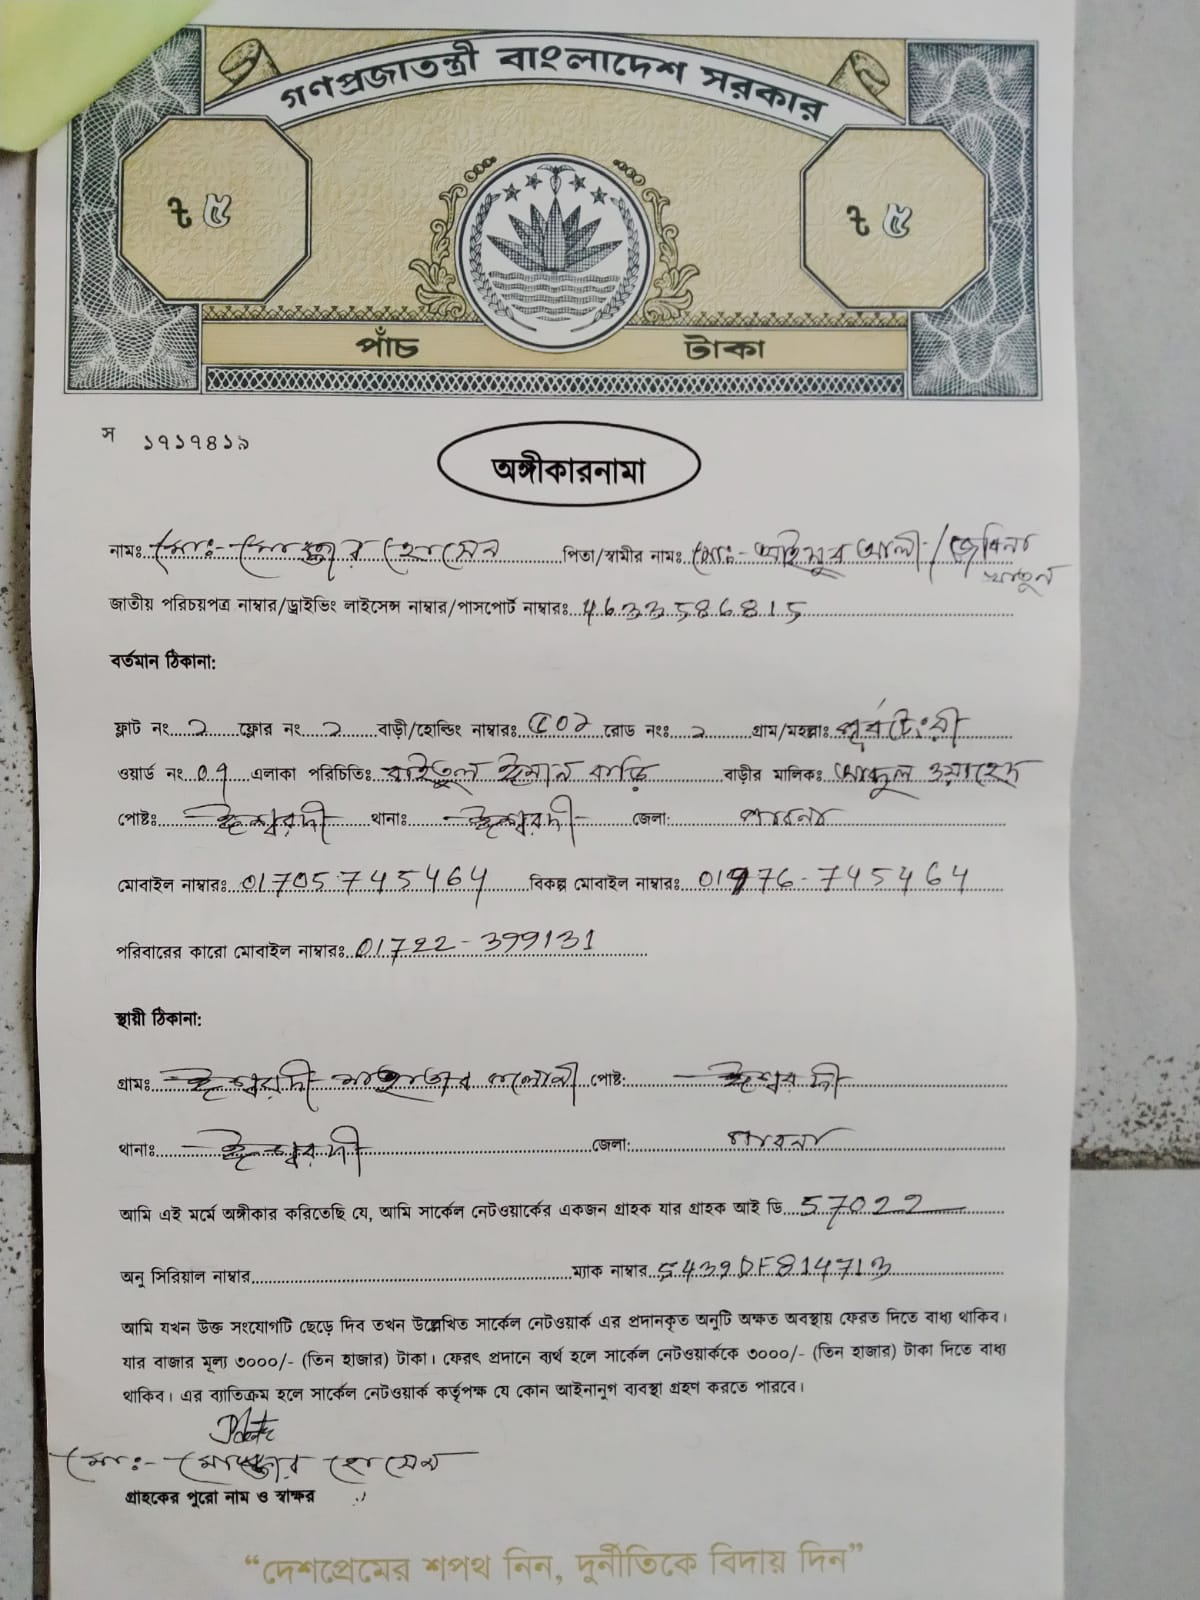 গণপ্রজাতন্ত্রী বাংলাদেশ সরকার
৳ ৫ ৳ ৫
পাঁচ টাকা
স ১৭১৭৪১৯
অঙ্গীকারনামা
নামঃ মোঃ- হোসেন পিতা/স্বামীর নামঃ মোঃ- আলী/জেবিনা খাতুন
জাতীয় পরিচয়পত্র নাম্বার/ড্রাইভিং লাইসেন্স নাম্বার/পাসপোর্ট নাম্বারঃ 4633586815
বর্তমান ঠিকানা:
ফ্লাট নং ২ ফ্লোর নং ২ বাড়ী/হোল্ডিং নাম্বারঃ রোড নংঃ ২ গ্রাম/মহল্লাঃ পূর্বটেংরী
ওয়ার্ড নং 07 এলাকা পরিচিতিঃ বাইতুল ঈমান বাড়ি বাড়ীর মালিকঃ ওয়াহেদ
পোষ্টঃ ঈশ্বরদী থানাঃ ঈশ্বরদী জেলা: পাবনা
মোবাইল নাম্বারঃ 01705745464 বিকল্প মোবাইল নাম্বারঃ 01976-745464
পরিবারের কারো মোবাইল নাম্বারঃ 01722-399131
স্থায়ী ঠিকানা:
গ্রামঃ ঈশ্বরদী কলোনী পোষ্ট: ঈশ্বরদী
থানাঃ ঈশ্বরদী জেলা: পাবনা
আমি এই মর্মে অঙ্গীকার করিতেছি যে, আমি সার্কেল নেটওয়ার্কের একজন গ্রাহক যার গ্রাহক আই ডি 57022
অনু সিরিয়াল নাম্বার ম্যাক নাম্বার 5439DF814713
আমি যখন উক্ত সংযোগটি ছেড়ে দিব তখন উল্লেখিত সার্কেল নেটওয়ার্ক এর প্রদানকৃত অনুটি অক্ষত অবস্থায় ফেরত দিতে বাধ্য থাকিব।
যার বাজার মূল্য ৩০০০/- (তিন হাজার) টাকা। ফেরৎ প্রদানে ব্যর্থ হলে সার্কেল নেটওয়ার্ককে ৩০০০/- (তিন হাজার) টাকা দিতে বাধ্য
থাকিব। এর ব্যাতিক্রম হলে সার্কেল নেটওয়ার্ক কর্তৃপক্ষ যে কোন আইনানুগ ব্যবস্থা গ্রহণ করতে পারবে।
মোঃ- হোসেন
গ্রাহকের পুরো নাম ও স্বাক্ষর
“দেশপ্রেমের শপথ নিন, দুর্নীতিকে বিদায় দিন”